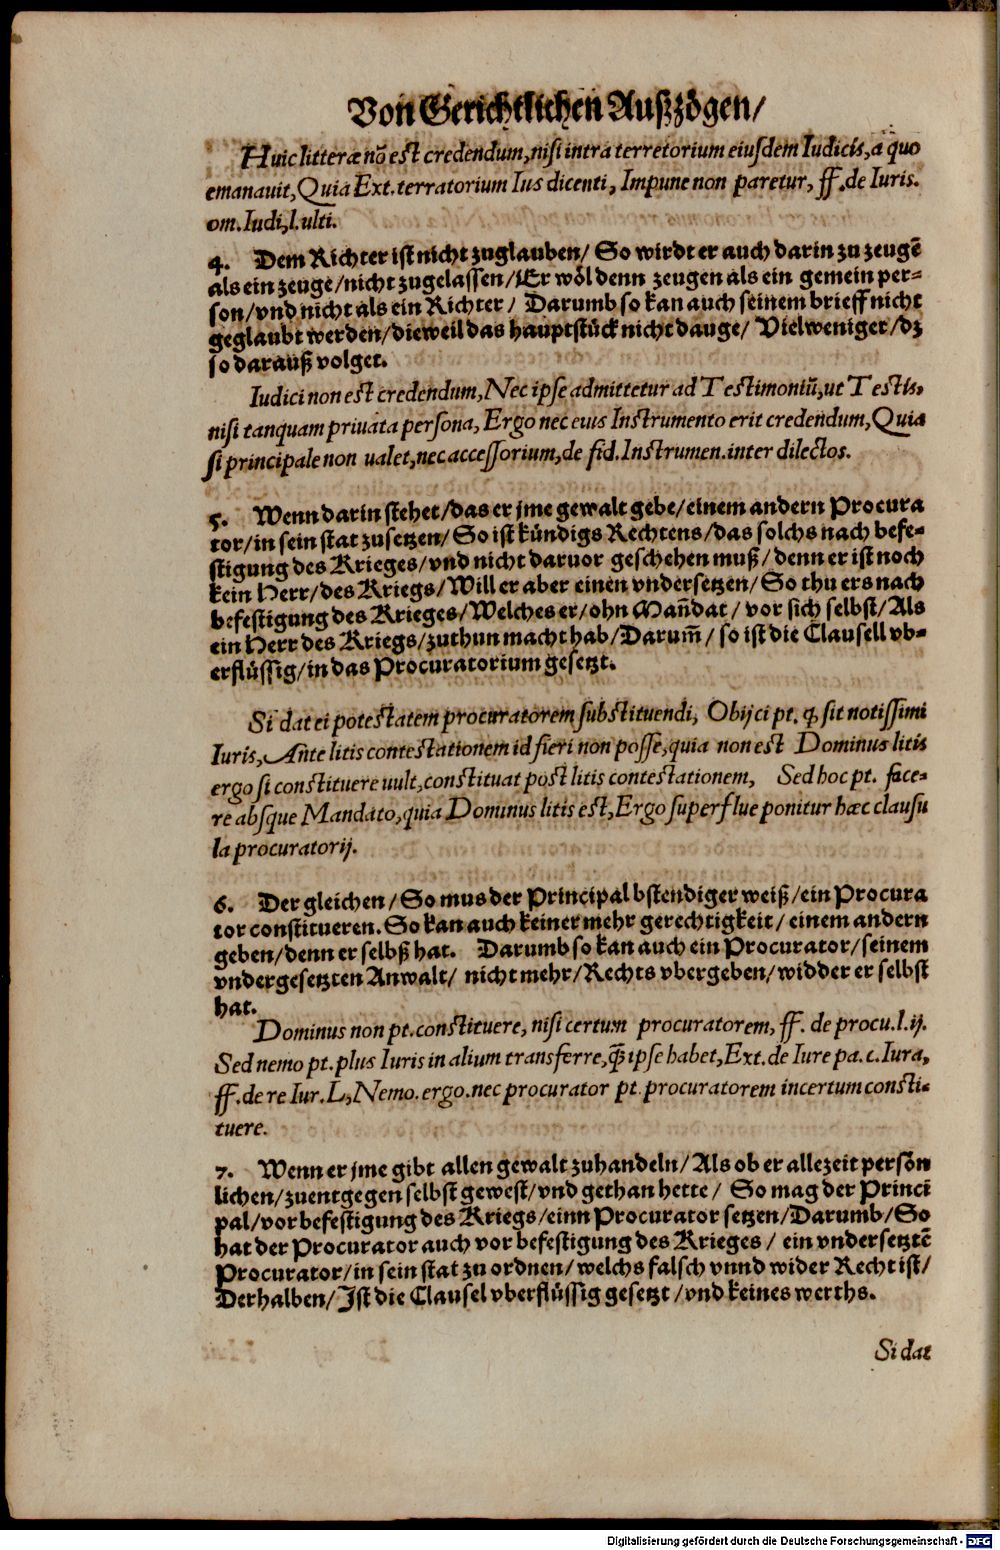 Von Gerichtlichen Außzögen/
Huic litteræ nō est credendum, nisi intra terretorium eiusdem Iudicis, a quo
emanauit, Quia Ext. terratorium Ius dicenti, Impune non paretur, ff. de Iuris.
om. Iudi, l. ulti.
4. Dem Richter ist nicht zuglauben/ So wirdt er auch darin zu zeugē
als ein zeuge/nicht zugelassen/Er wöl denn zeugen als ein gemein per-
son/vnd nicht als ein Richter/ Darumb so kan auch seinem brieff nicht
geglaubt werden/dieweil das hauptstück nicht dauge/ Vielweniger/dz
so darauß volget.
Iudici non est credendum, Nec ipse admittetur ad Testimoniū, ut Testis,
nisi tanquam priuata persona, Ergo nec eius Instrumento erit credendum, Quia
si principale non ualet, nec accessorium, de fid. Instrumen. inter dilectos.
5. Wenn darin stehet/das er jme gewalt gebe/einem andern Procura
tor/in sein stat zusetzen/ So ist kündigs Rechtens/das solchs nach befe-
stigung des Krieges/vnd nicht daruor geschehen muß/denn er ist noch
kein Herr/des Kriegs/Will er aber einen vndersetzen/So thu ers nach
befestigung des Krieges/Welches er/ohn Man̄dat/ vor sich selbst/Als
ein Herr des Kriegs/zuthun macht hab/Darum̄/ so ist die Clausell vb-
erflüssig/in das Procuratorium gesetzt.
Si dat ei potestatem procuratorem substituendi, Obijci pt. ꝙ sit notissimi
Iuris, Ante litis contestationem id fieri non posse, quia non est Dominus litis
ergo si constituere uult, constituat post litis contestationem, Sed hoc pt. face-
re absque Mandato, quia Dominus litis est, Ergo superflue ponitur hæc clausu
la procuratorij.
6. Der gleichen/So mus der Principal bstendiger weiß/ein Procura
tor constitueren. So kan auch keiner mehr gerechtigkeit/einem andern
geben/denn er selbß hat. Darumb so kan auch ein Procurator/seinem
vndergesetzten Anwalt/ nicht mehr/Rechts vbergeben/widder er selbst
hat.
Dominus non pt. constituere, nisi certum procuratorem, ff. de procu. l. ij.
Sed nemo pt. plus Iuris in alium transferre, ꝗ̄ ipse habet, Ext. de Iure pa. c. Iura,
ff. de re Iur. L, Nemo. ergo. nec procurator pt. procuratorem incertum consti-
tuere.
7. Wenn er jme gibt allen gewalt zuhandeln/Als ob er allezeit persōn
lichen/zuentgegen selbst gewest/vnd gethan hette/ So mag der Princi
pal/vor befestigung des Kriegs/einn Procurator setzen/Darumb/So
hat der Procurator auch vor befestigung des Krieges/ ein vndersetztē
Procurator/in sein stat zu ordnen/welchs falsch vnnd wider Recht ist/
Derhalben/Ist die Clausel vberflüssig gesetzt/vnd keines werths.
Si dat
Digitalisierung gefördert durch die Deutsche Forschungsgemeinschaft - DFG